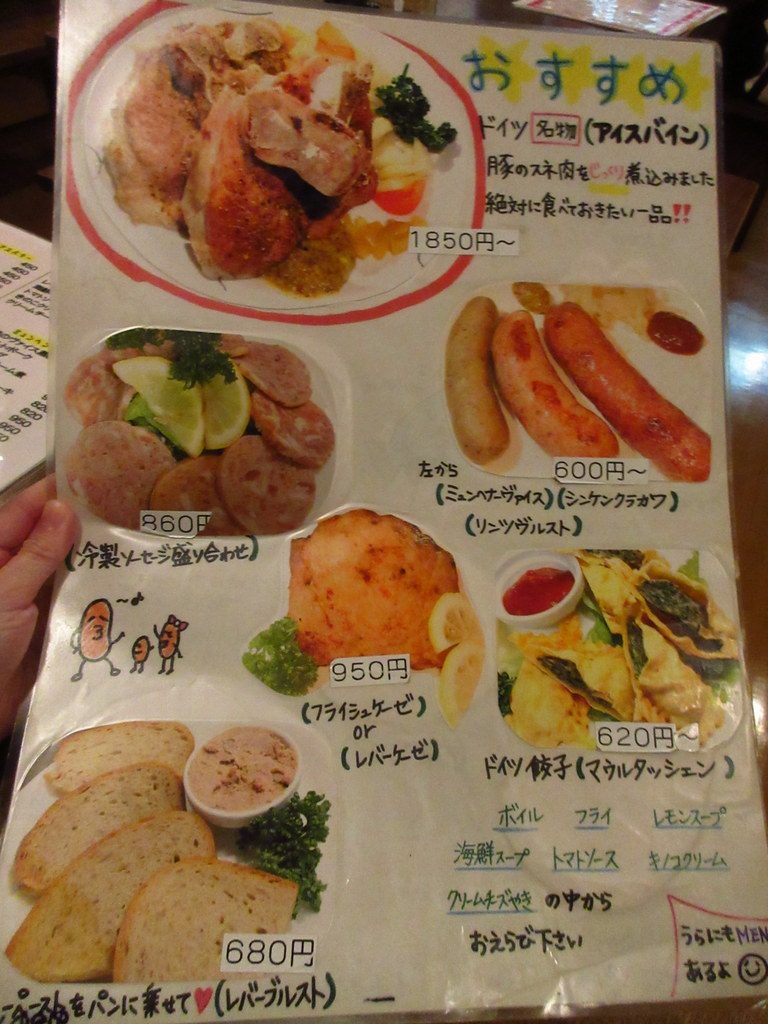 おすすめ
ドイツ 名物 (アイスバイン)
豚のスネ肉をじっくり煮込みました
絶対に食べておきたい一品!!
1850円〜
600円〜
左から
(ミュンヘナーヴァイス)(シンケンクラカワ)
(リンツヴルスト)
860円
(冷製ソーセージ盛り合わせ)
950円
(フライシュケーゼ)
or
(レバーケーゼ)
620円〜
ドイツ餃子(マウルタッシェン)
ボイル フライ レモンスープ
海鮮スープ トマトソース キノコクリーム
クリームチーズやき の中から
おえらび下さい
680円
ペーストをパンに乗せて♥(レバーブルスト)
うらにもMEN
あるよ☺